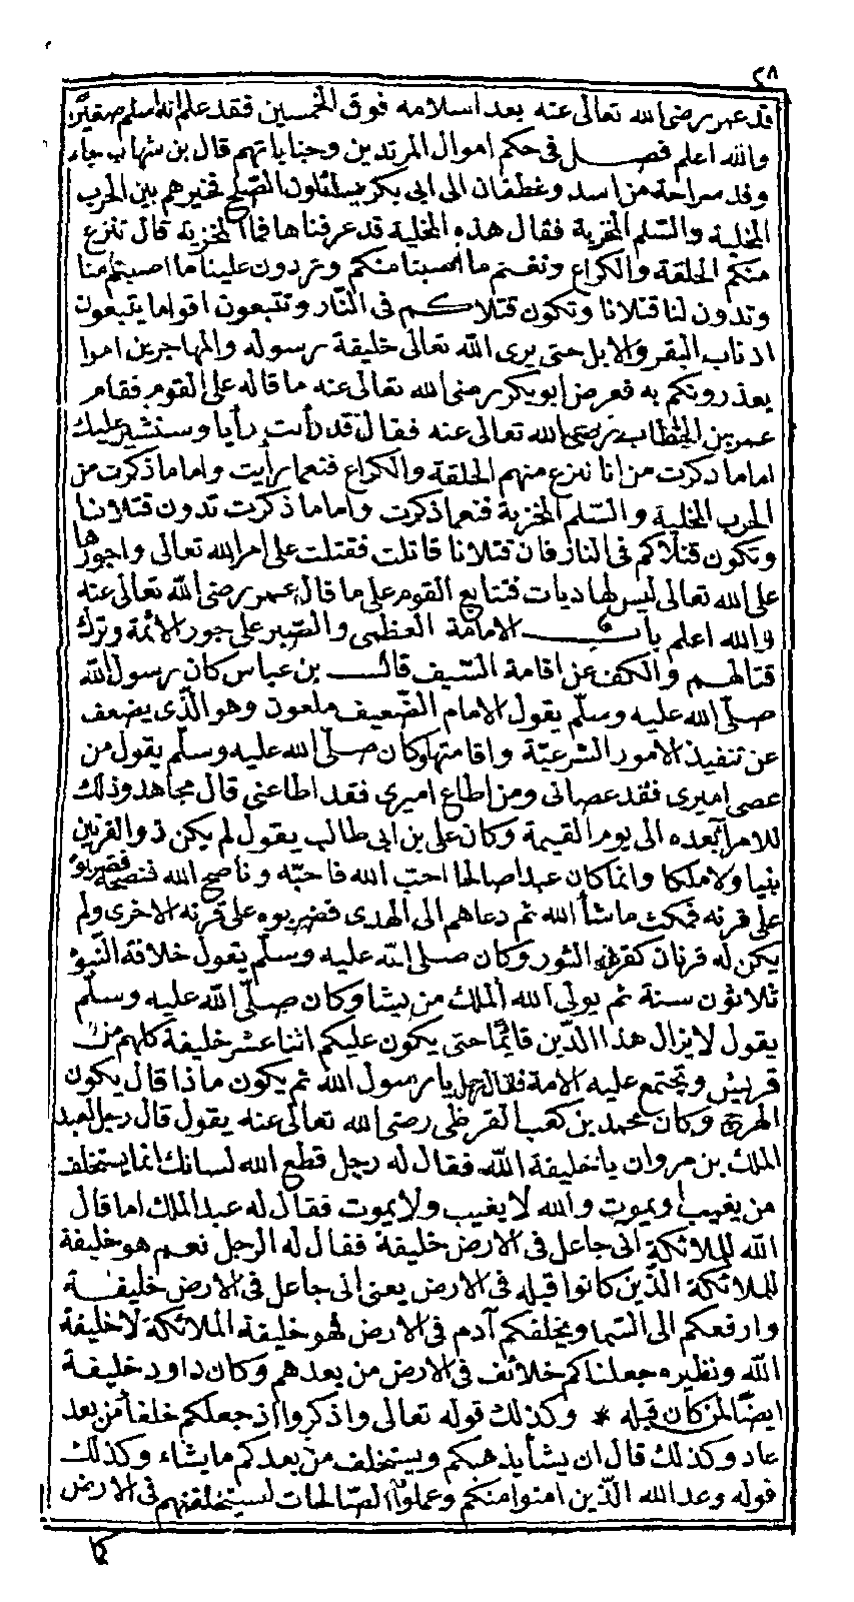 ٢٨
قد عمر رضي الله تعالى عنه بعد اسلامه فوق الخمسين فقد علم انه اسلم صغيرًا
والله اعلم فصل فى حكم اموال المرتدين وجناياتهم قال بن شهاب جاء
وفد بزاخة من اسد وغطفان الى ابى بكر يسئلون الصّلح فخيرهم بين الحرب
المجلية والسّلم المخزية فقال هذه المجلية قد عرفناها فما المخزية قال تنزع
منكم الحلقة والكراع ونغنم ما اصبنا منكم وتردون علينا ما اصبتم منا
وتدون لنا قتلانا وتكون قتلاكم فى النّار وتتبعون اقواما يتبعون
اذناب البقر والابل حتى يرى الله تعالى خليفة رسوله والمهاجرين امرا
يعذرونكم به فعرض ابو بكر رضى الله تعالى عنه ما قاله على القوم فقام
عمر بن الخطاب رضى الله تعالى عنه فقال قد رأيت رأيا وسنشير عليك
اما ما ذكرت من انا ننزع منهم الحلقة والكراع فنعما رأيت واما ما ذكرت من
الحرب المجلية والسّلم المخزية فنعما ذكرت واما ما ذكرت تدون قتلانا
وتكون قتلاكم فى النار فان قتلانا قاتلت فقتلت على امر الله تعالى واجورها
على الله تعالى ليس لها ديات فتتابع القوم على ما قال عمر رضى الله تعالى عنه
والله اعلم باب الامامة العظمى والصّبر على جور الائمة وترك
قتالهم والكف عن اقامة السّيف قال بن عباس كان رسول الله
صلّى الله عليه وسلّم يقول الامام الضّعيف ملعون وهو الذّى يضعف
عن تنفيذ الامور الشرعيّة واقامتها وكان صلّى الله عليه وسلّم يقول من
عصى اميرى فقد عصانى ومن اطاع اميرى فقد اطاعنى قال مجاهد وذلك
للامراء بعده الى يوم القيمة وكان على بن ابى طالب يقول لم يكن ذو القرنين
نبيا ولا ملكا وانما كان عبدا صالحا احب الله فاحبّه وناصح الله فنصحه فضربوه
على قرنه فمكث ما شأ الله ثم دعاهم الى الهدى فضربوه على قرنه الاخرى ولم
يكن له قرنان كقرنى الثور وكان صلى الله عليه وسلّم يقول خلافة النّبوّ
ثلاثون سنة ثم يولى الله الملك من يشا وكان صلّى الله عليه وسلّم
يقول لا يزال هذا الدّين قايمًا حتى يكون عليكم اثنا عشر خليفة كلهم من
قريش وتجتمع عليه الامة فقال رجل يا رسول الله ثم يكون ماذا قال يكون
الهرج وكان محمد بن كعب القرظى رضى الله تعالى عنه يقول قال رجل لعبد
الملك بن مروان يا خليفة الله فقال له رجل قطع الله لسانك انما يستخلف
من يغيب ويموت والله لا يغيب ولا يموت فقال له عبد الملك اما قال
الله للملائكة انى جاعل فى الارض خليفة فقال له الرجل نعم هو خليفة
للملائكة الذّين كانوا قبله فى الارض يعنى انى جاعل فى الارض خليفة
وارفعكم الى السّما ويخلفكم آدم فى الارض فهو خليفة الملائكة لا خليفة
الله ونظيره جعلناكم خلائف فى الارض من بعدهم وكان داود خليفة
ايضًا لمن كان قبله * وكذلك قوله تعالى واذكروا اذ جعلكم خلفأ من بعد
عاد وكذلك قال ان يشأ يذهبكم ويستخلف من بعدكم ما يشاء وكذلك
قوله وعد الله الذّين امنوا منكم وعملوا الصّالحات ليستخلفنهم فى الارض
كما